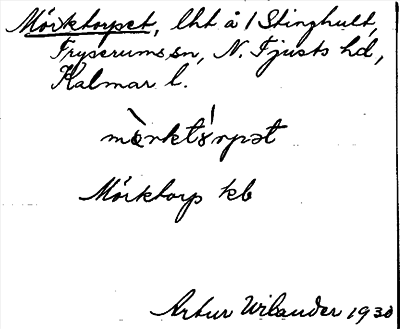 Mörktorpet, lht å 1 Stinghult,
Fryserums sn, N. Tjusts hd,
Kalmar l.
mö̀rktọ́rpət
Mörktorp kb
Artur Wilander 1930